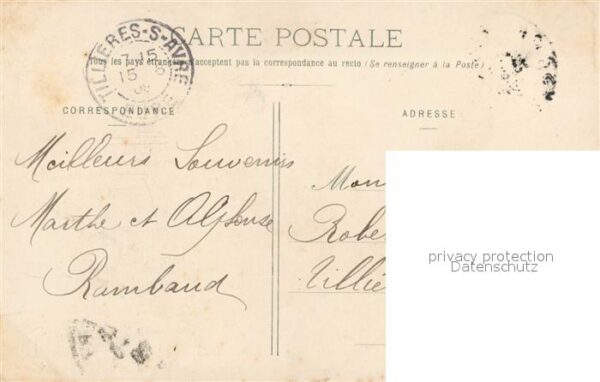 CARTE POSTALE
Tous les pays étrangers n'acceptent pas la correspondance au recto (Se renseigner à la Poste)
TILLIÈRES-S-AVRE
15
CORRESPONDANCE
ADRESSE
Meilleurs Souvenirs
Marthe et Alphonse
Rambaud
Mon
Robe
Tilliè
privacy protection
Datenschutz